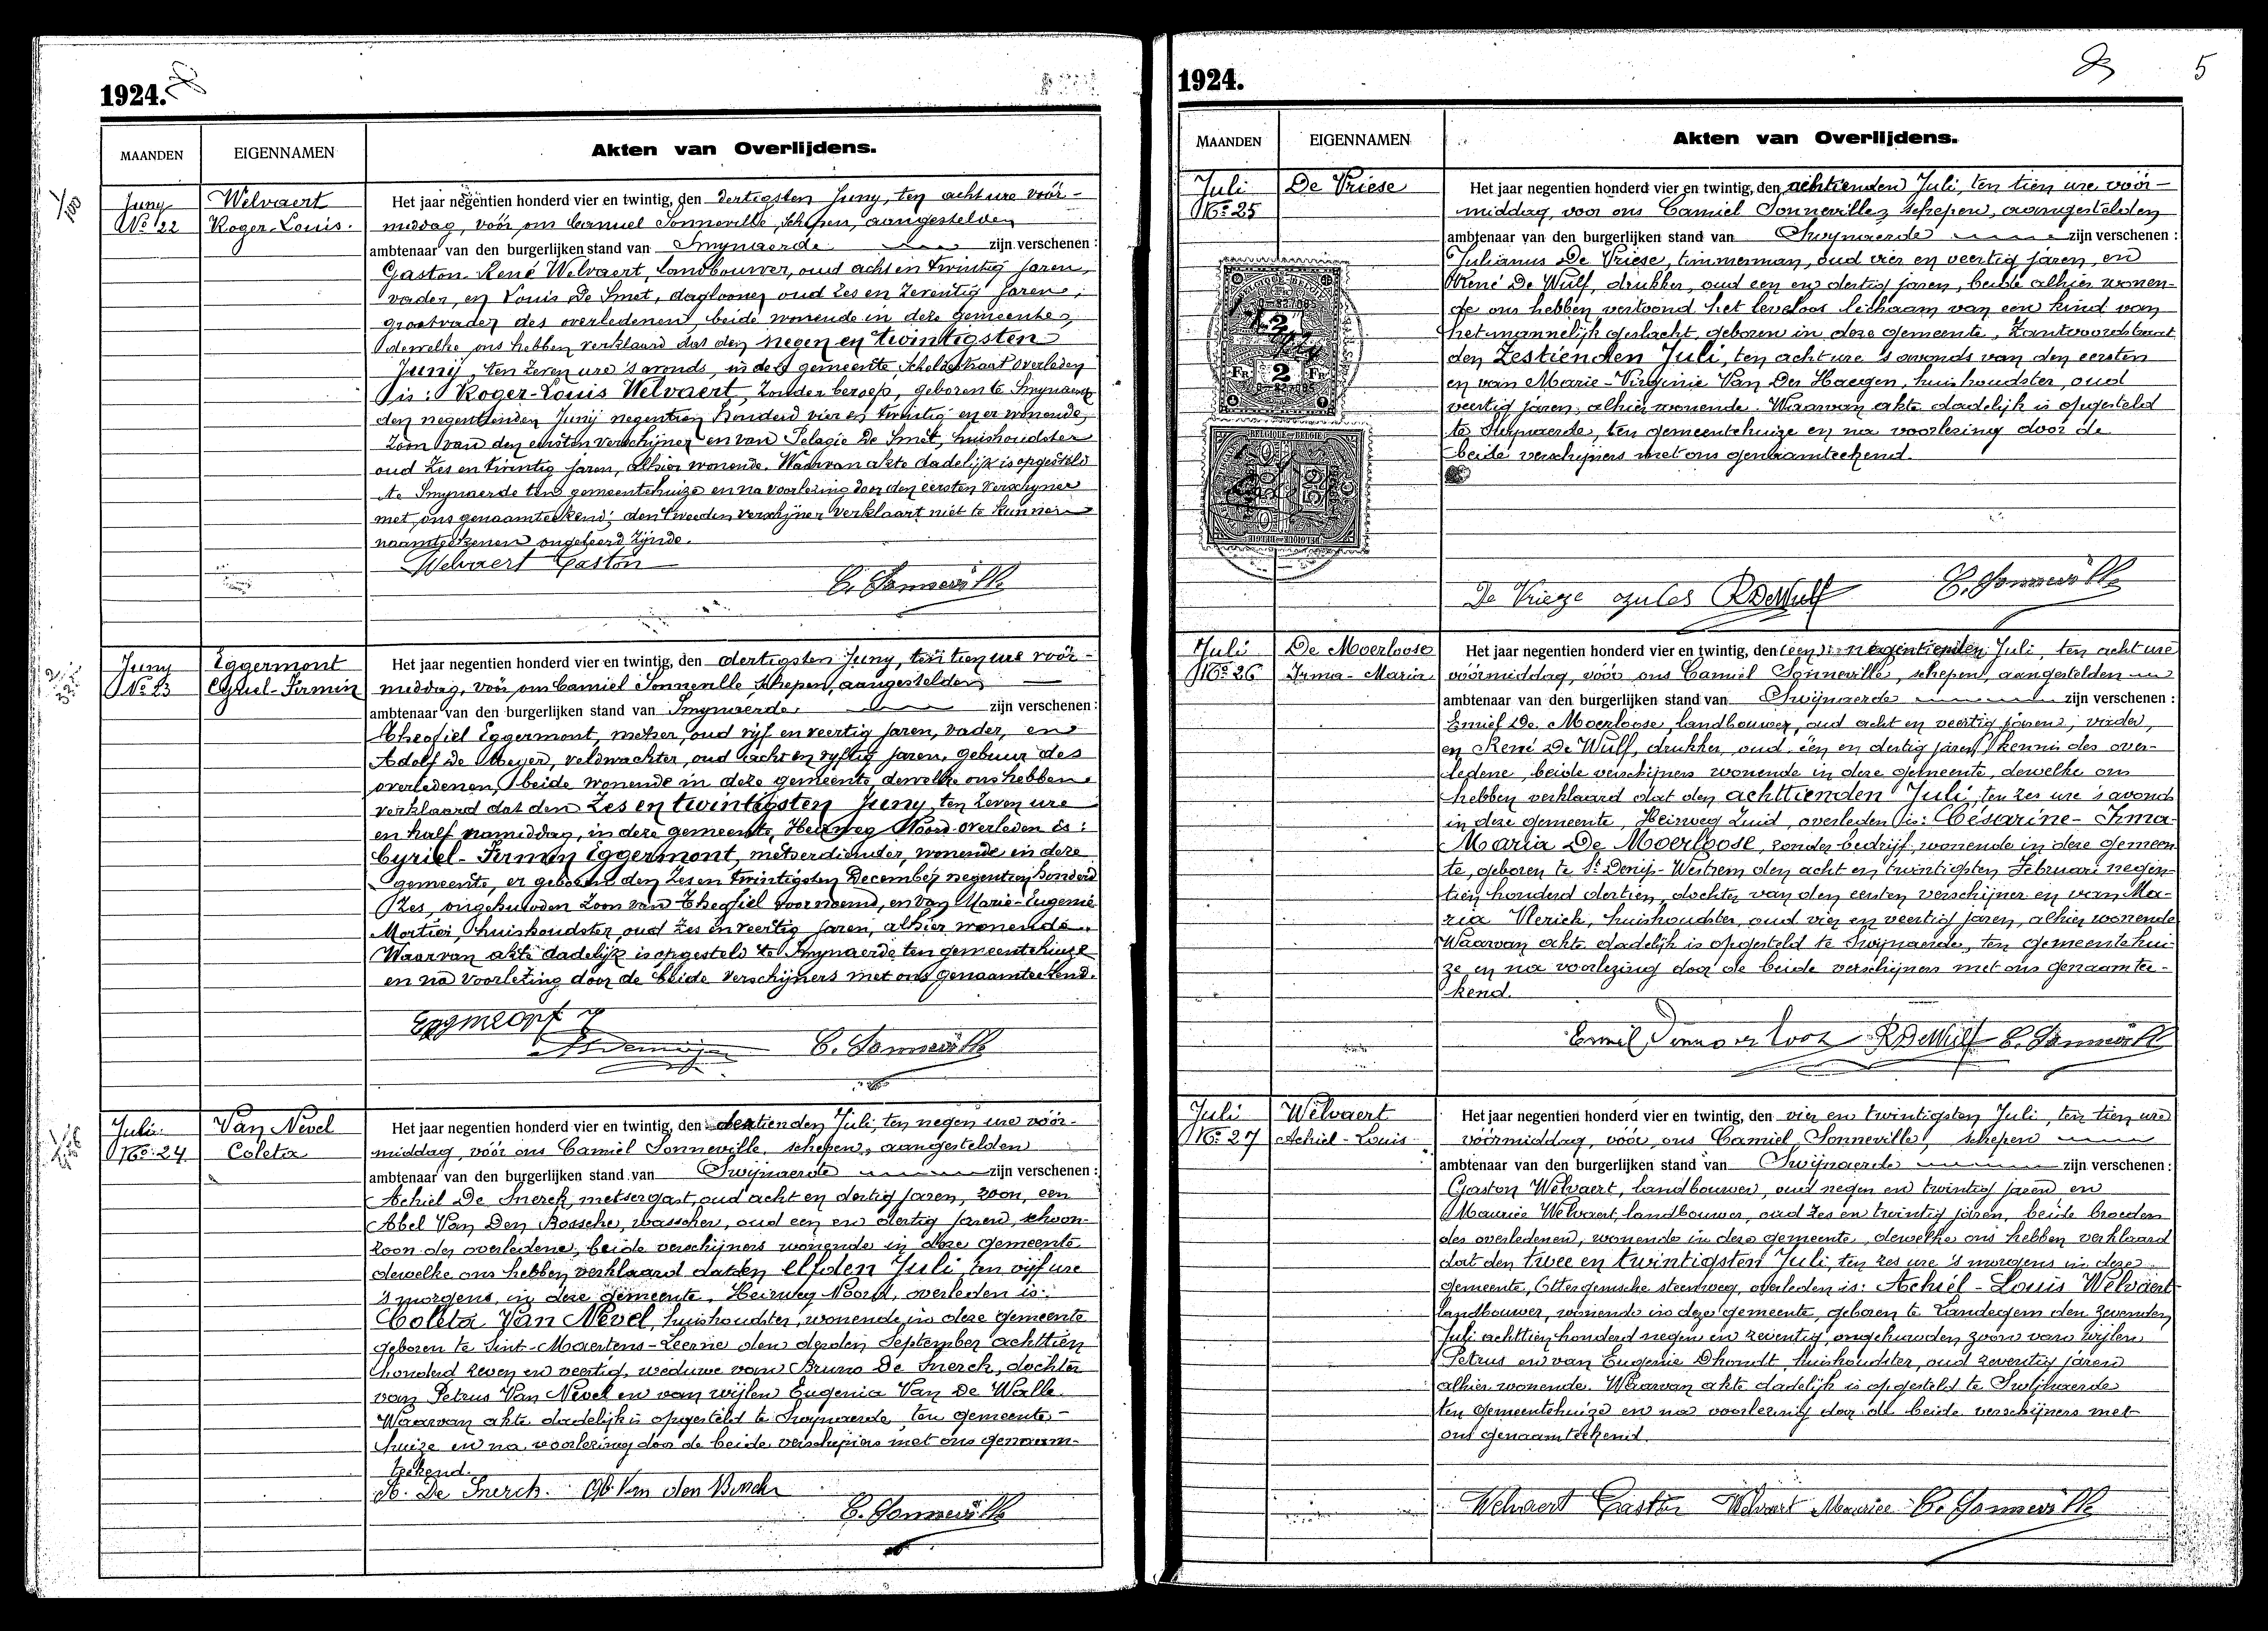 1924.
MAANDEN
EIGENNAMEN
Akten van Overlijdens.
Juny
No 22
Welvaert
Roger-Louis.
Het jaar negentien honderd vier en twintig, den dertigsten Juny, ten acht ure vóór-
middag, vóór ons Camiel Sonneville, schepen, aangestelden
ambtenaar van den burgerlijken stand van Swynaerde zijn verschenen :
Gaston René Welvaert, landbouwer, oud acht en twintig jaren,
vader, en Louis De Smet, daglooner oud zes en zeventig jaren,
grootvader des overledenen, beide wonende in deze gemeente,
dewelke ons hebben verklaard dat den negen en twintigsten
Juny, ten zeven ure 's avonds, in deze gemeente, Scheldestraat overleden
is: Roger-Louis Welvaert, zonder beroep, geboren te Swynaerde
den negentienden Junij negentien honderd vier en twintig en er wonende,
zoon van den eersten verschijner en van Pelagie De Smet, huishoudster
oud zes en twintig jaren, alhier wonende. Waarvan akte dadelijk is opgesteld
te Swynaerde ten gemeentehuize en na voorlezing door den eersten verschyner
met ons genaamteekend; den tweeden verschijner verklaart niet te kunnen
naamteekenen ongeleerd zijnde.
Welvaert Gaston
C. Sonneville
Juny
No 23
Eggermont
Cyriel-Firmin
Het jaar negentien honderd vier en twintig, den dertigsten Juny, ten tien ure vóór-
middag, vóór ons Camiel Sonneville, schepen, aangestelden
ambtenaar van den burgerlijken stand van Swynaerde zijn verschenen :
Theofiel Eggermont, metser, oud vijf en veertig jaren, vader, en
Adolf De Meyer, veldwachter, oud acht en vyftig jaren, gebuur des
overledenen, beide wonende in deze gemeente, dewelke ons hebben
verklaard dat den zes en twintigsten Juny, ten zeven ure
en half namiddag, in deze gemeente, Heirweg Noord overleden is :
Cyriel-Firmin Eggermont, metserdiender, wonende in deze
gemeente, er geboren den zes en twintigsten December negentien honderd
zes, ongehuwden zoon van Theofiel voornoemd, en van Marie-Eugenie
Mortier, huishoudster, oud zes en veertig jaren, alhier wonende.
Waarvan akte dadelijk is opgesteld te Swynaerde ten gemeentehuize
en na voorlezing door de beide verschijners met ons genaamteekend.
C. Sonneville
Juli
No 24
Van Nevel
Coleta
Het jaar negentien honderd vier en twintig, den dertienden Juli, ten negen ure vóór-
middag, vóór ons Camiel Sonneville, schepen, aangestelden
ambtenaar van den burgerlijken stand van Swijnaerde zijn verschenen :
Achiel De Snerck, metsergast, oud acht en dertig jaren, zoon, een
Abel Van Den Bossche, wasscher, oud een en dertig jaren, schoon-
zoon der overledene, beide verschijners wonende in deze gemeente
dewelke ons hebben verklaard dat den elfden Juli, ten vijf ure
's morgens, in deze gemeente, Heirweg Noord, overleden is:
Coleta Van Nevel, huishoudster, wonende in deze gemeente
geboren te Sint-Maertens-Leerne den derden September achttien
honderd zeven en veertig, weduwe van Bruno De Snerck, dochter
van Petrus Van Nevel en van wijlen Eugenia Van De Walle.
Waarvan akte dadelijk is opgesteld te Swijnaerde ten gemeente-
huize en na voorlezing door de beide verschijners met ons genaam-
teekend.
A. De Snerck. Ab. Van den Bossche
C. Sonneville
1924.
5
MAANDEN
EIGENNAMEN
Akten van Overlijdens.
Juli
No 25
De Vriese
Het jaar negentien honderd vier en twintig, den achtienden Juli, ten tien ure vóór-
middag, voor ons Camiel Sonneville, schepen, aangestelden
ambtenaar van den burgerlijken stand van Swijnaerde zijn verschenen :
Julianus De Vriese, timmerman, oud vier en veertig jaren, en
René De Wulf, drukker, oud een en dertig jaren, beide alhier wonen-
de ons hebben vertoond het levenloos lichaam van een kind van
het mannelijk geslacht, geboren in deze gemeente, Zantvoordstraat
den zestienden Juli, ten acht ure 's avonds van den eersten
en van Marie-Virginie Van Der Haegen, huishoudster, oud
veertig jaren, alhier wonende. Waarvan akte dadelijk is opgesteld
te Swijnaerde, ten gemeentehuize en na voorlezing door de
beide verschijners met ons genaamteekend.
FR 2 FR
BELGIQUE - BELGIE
50
De Vrieze Jules R De Wulf C. Sonneville
Juli
No 26
De Moerloose
Irma-Maria
Het jaar negentien honderd vier en twintig, den negentienden Juli, ten acht ure
vóórmiddag, vóór ons Camiel Sonneville, schepen, aangestelden
ambtenaar van den burgerlijken stand van Swijnaerde zijn verschenen :
Emiel De Moerloose, landbouwer, oud acht en veertig jaren, vader,
en René De Wulf, drukker, oud één en dertig jaren, kennis der over-
ledene, beide verschijners wonende in deze gemeente, dewelke ons
hebben verklaard dat den achttienden Juli, ten zes ure 's avonds
in deze gemeente, Heirweg Zuid, overleden is: Césarine-Irma-
Maria De Moerloose, zonder bedrijf, wonende in deze gemeen-
te, geboren te St Denijs-Westrem den acht en twintigsten Februari negen-
tien honderd dertien, dochter van den eersten verschijner en van Ma-
ria Vlerick, huishoudster, oud vier en veertig jaren, alhier wonende
Waarvan akte dadelijk is opgesteld te Swijnaerde, ten gemeentehui-
ze en na voorlezing door de beide verschijners met ons genaamtee-
kend.
R De Wulf C. Sonneville
Juli
No 27
Welvaert
Achiel-Louis
Het jaar negentien honderd vier en twintig, den vier en twintigsten Juli, ten tien ure
vóórmiddag, vóór ons Camiel Sonneville, schepen
ambtenaar van den burgerlijken stand van Swijnaerde zijn verschenen :
Gaston Welvaert, landbouwer, oud negen en twintig jaren, en
Maurice Welvaert, landbouwer, oud zes en twintig jaren, beide broeders
des overledenen, wonende in deze gemeente, dewelke ons hebben verklaard
dat den twee en twintigsten Juli, ten zes ure 's morgens in deze
gemeente, Ottergemsche steenweg, overleden is: Achiel-Louis Welvaert
landbouwer, wonende in deze gemeente, geboren te Landegem den zevenden
Juli achttien honderd negen en zeventig, ongehuwden zoon van wijlen
Petrus en van Eugenie Dhondt, huishoudster, oud zeventig jaren
alhier wonende. Waarvan akte dadelijk is opgesteld te Swijnaerde
ten gemeentehuize en na voorlezing door de beide verschijners met
ons genaamteekend.
Welvaert Gaston Welvaert Maurice C. Sonneville